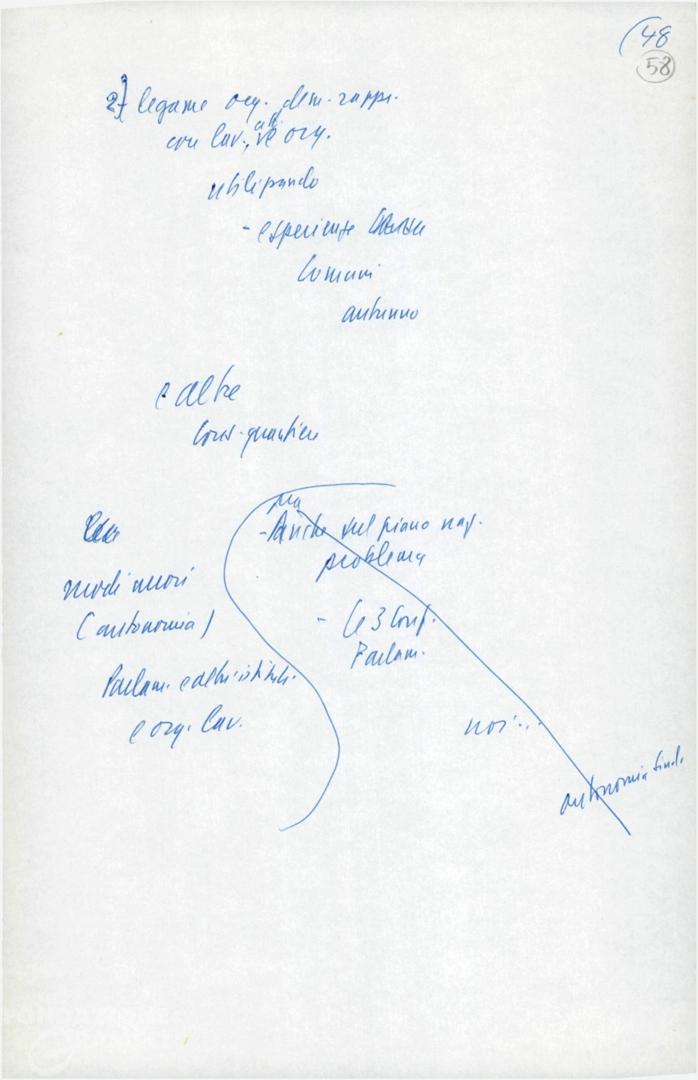 (48
58
2) legame org. dem. rapp.
con lav. org.
utilizzando
- esperienze
Comuni
autunno
e altre
Cons. quartiere
ma
- Anche sul piano naz.
problema
modi nuovi
(autonomia)
- Le 3 Conf.
Parlam.
Parlam. e altri istitut.
e org. lav.
noi...
autonomia sind.